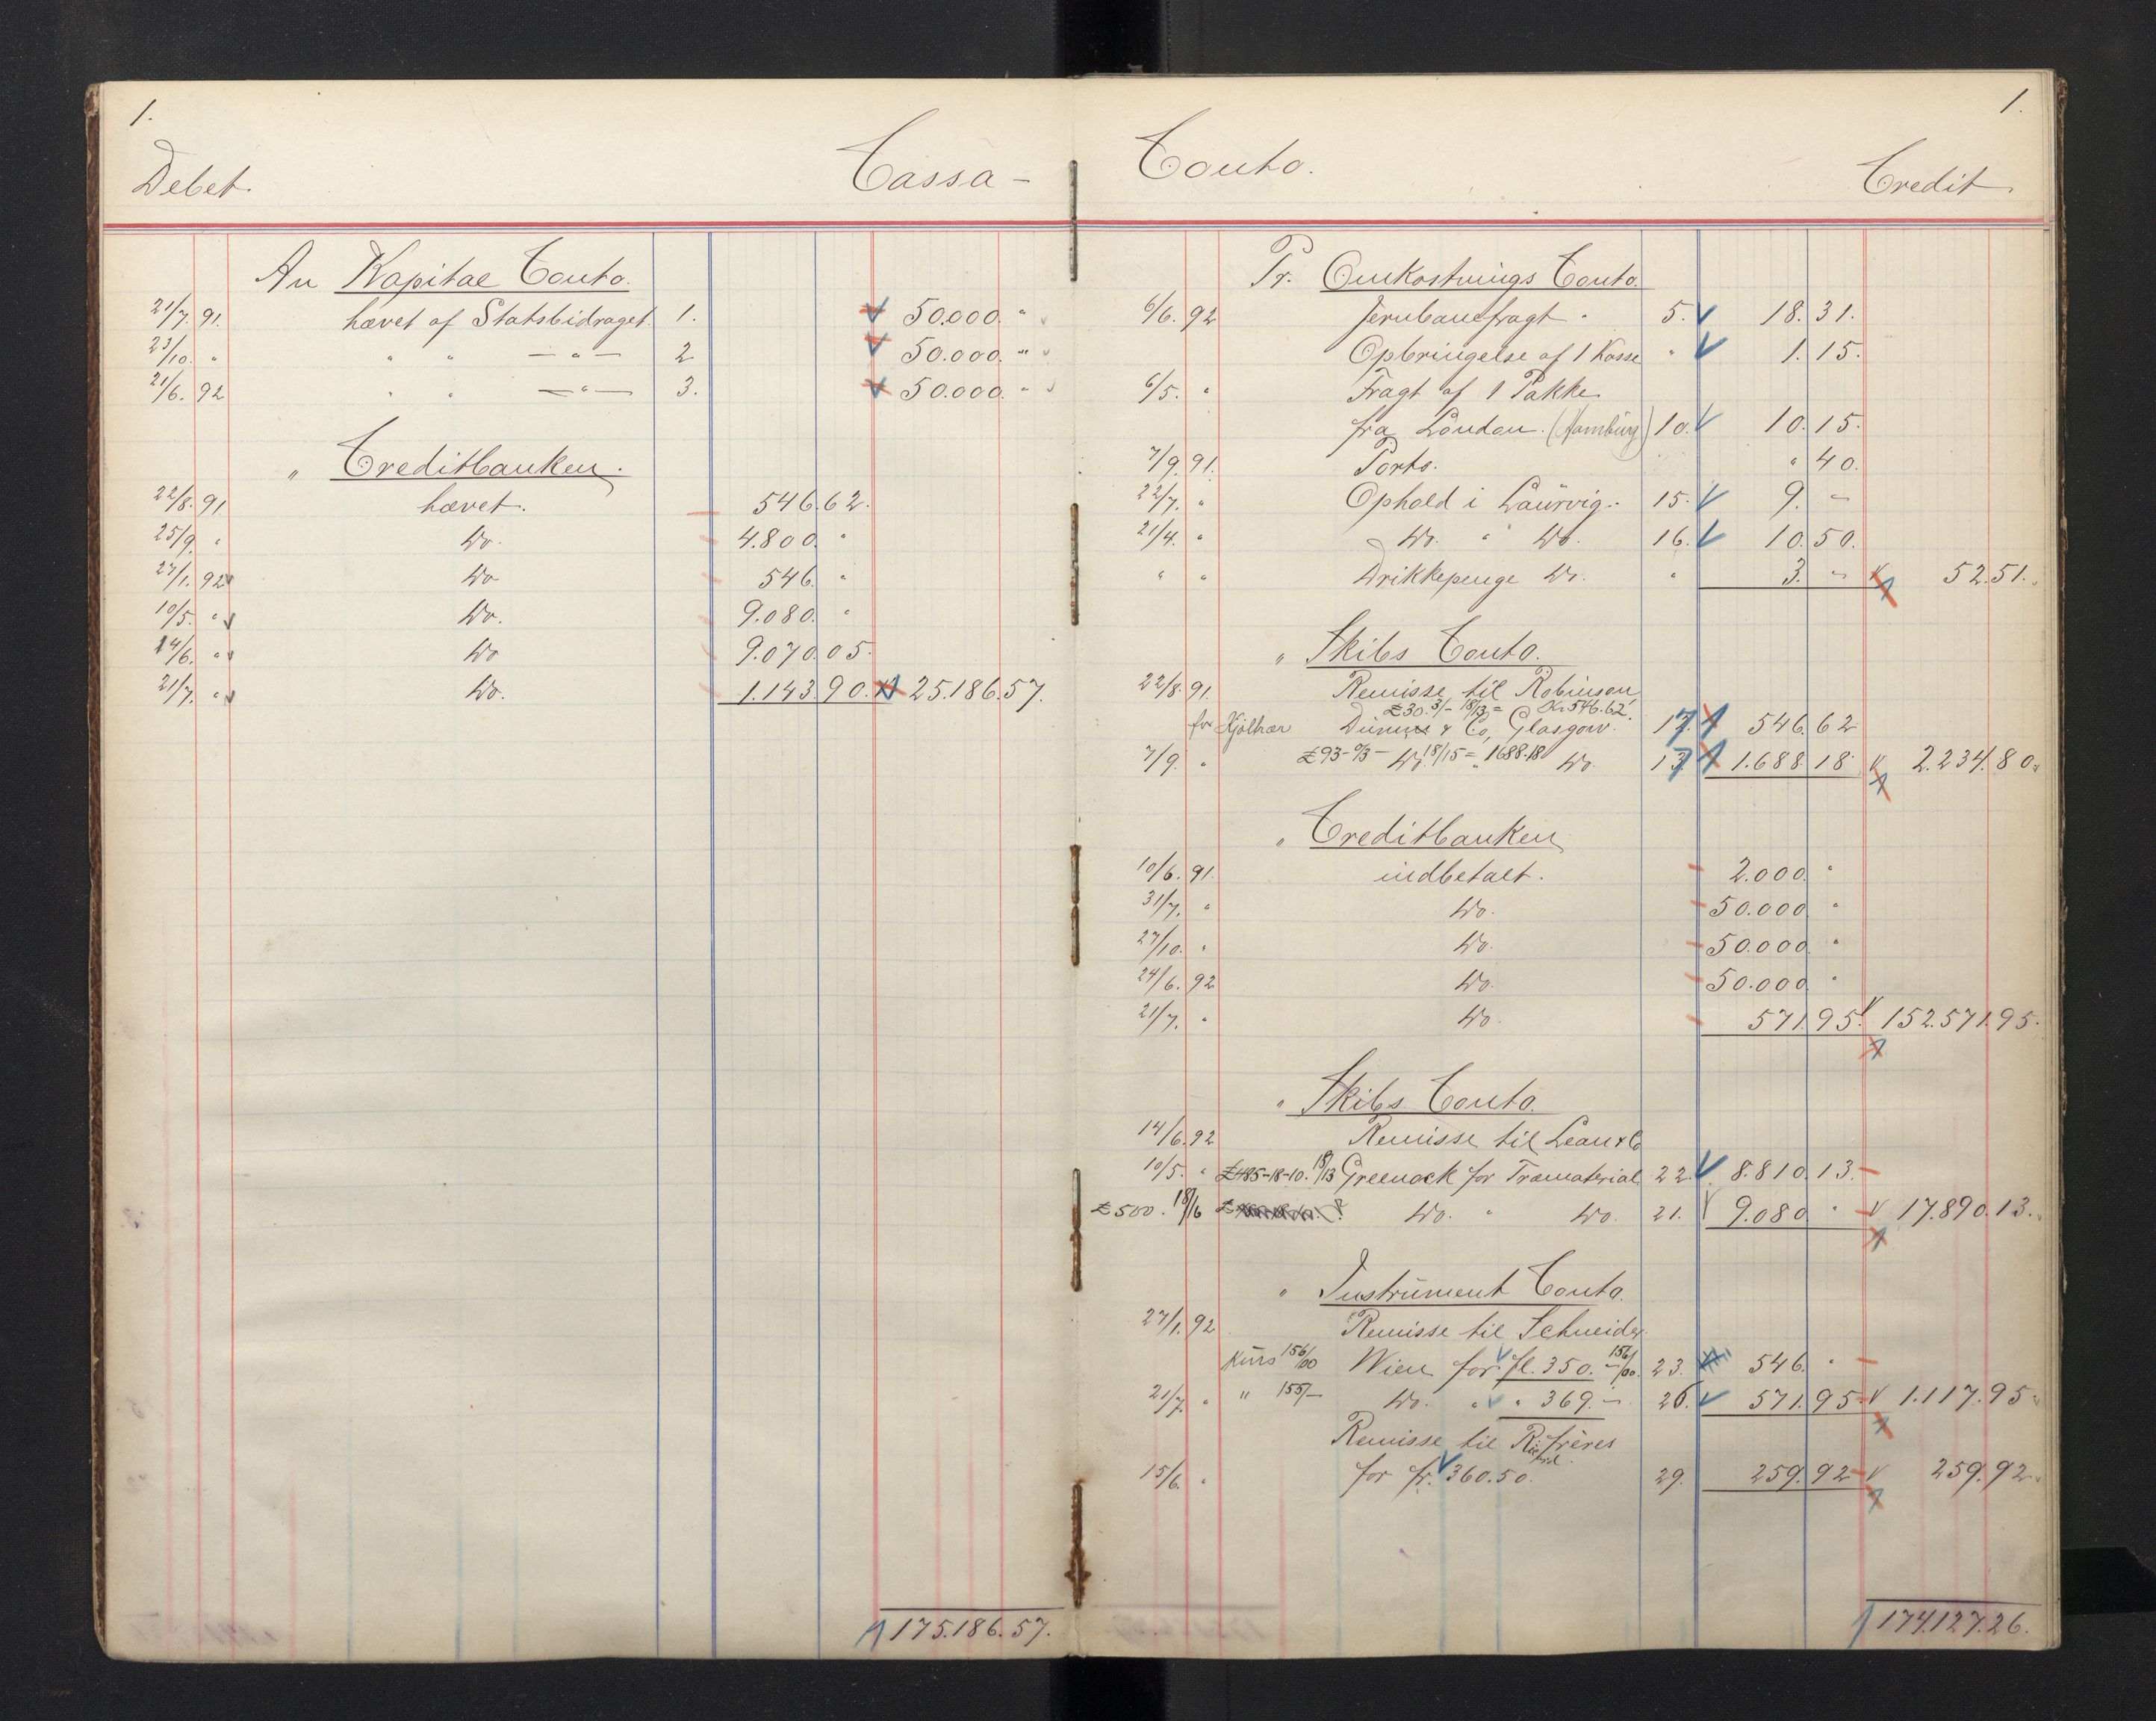 1.
Debet. Cassa-
An Kapital Conto.
21/7. 91. hævet af Statsbidraget. 1. 50.000. "
23/10. " " " — " — 2 50.000. "
21/6. 92 " " — " — 3. 50.000. "
" Creditbanken.
22/8. 91 hævet. 546.62.
25/9. " Do. 4.800. "
27/1. 92 Do 546. "
10/5. " Do. 9.080. "
14/6. " Do 9.070.05.
21/7. " Do. 1.143.90. 25.186.57.
175.186.57.
1.
Conto. Credit.
Pr. Omkostnings Conto.
6/6. 92 Jernbanefragt " 5. 18.31.
Opbringelse af 1 Kasse " 1.15.
6/5. " Fragt af 1 Pakke
fra London. (Hamburg) 10. 10.15.
7/9. 91. Porto. " 40.
22/7. " Ophold i Laurvig. 15. 9. "
21/4. " Do. " Do. 16. 10.50.
" " Drikkepenge Do. " 3. " 52.51.
" Skibs Conto.
22/8. 91. Remisse til Robinson
£30. 3/- 18/13 = Kr 546.62.
for Kjølhær Dunn & Co, Glasgow. 17. 546.62
7/9. " £93-0/3- Do. 18/15 = 1688.18 " Do. 13 1.688.18 2.234.80.
" Creditbanken
10/6. 91. indbetalt. 2.000. "
31/7. " Do. 50.000 "
27/10. " Do. 50.000 "
24/6. 92 Do. 50.000 "
21/7. " Do. 571.95. 152.571.95.
" Skibs Conto.
14/6. 92 Remisse til Lean & Co
10/5. " £485-18-10. 18/13 Greenock for Træmaterial 22. 8.810.13.
£500. 18/6 Do. " Do. 21. 9.080 " 17.890.13.
" Instrument Conto.
27/1. 92 Remisse til Schneider
Kurs 156/00 Wien for fl. 350. — 156/00. 23. 546. "
21/7. " " 155/- Do. " " 369. — 26. 571.95 1.117.95
Remisse til Richard frères
15/6. " for fr. 360.50. 29. 259.92 259.92
174.127.26.